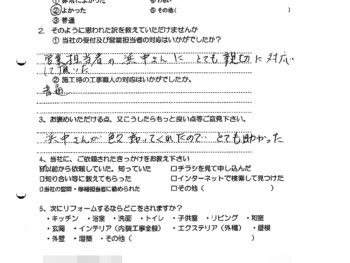 ①非常によかった ④悪い
②よかった ⑤その他(
③普通
2. そのように思われた訳を教えていただけませんか
① 当社の受付及び営業担当者の対応はいかがでしたか?
営業担当者の浜中さんに とても親切に対応
して頂いた
② 施工時の工事職人の対応はいかがでしたか。
普通
3、お褒めいただける点、又こうしたらもっと良い点等ご意見下さい。
浜中さんが色々やってくれたので とても助かった
4、当社に、ご依頼されたきっかけをお教え下さい
☑以前から依頼していた。知っていた □チラシを見て申し込んだ
□知り合い等に教えてもらった □インターネットで検索して見つけた
□当社の訪問・専種担当者に勧められた □その他( )
5、次にリフォームするならどこをされますか?
・キッチン ・浴室 ・洗面 ・トイレ ・子供室 ・リビング ・和室
・玄関 ・インテリア(内装工事全般) ・エクステリア(外構) ・屋根
・外壁 ・増築 ・その他( )